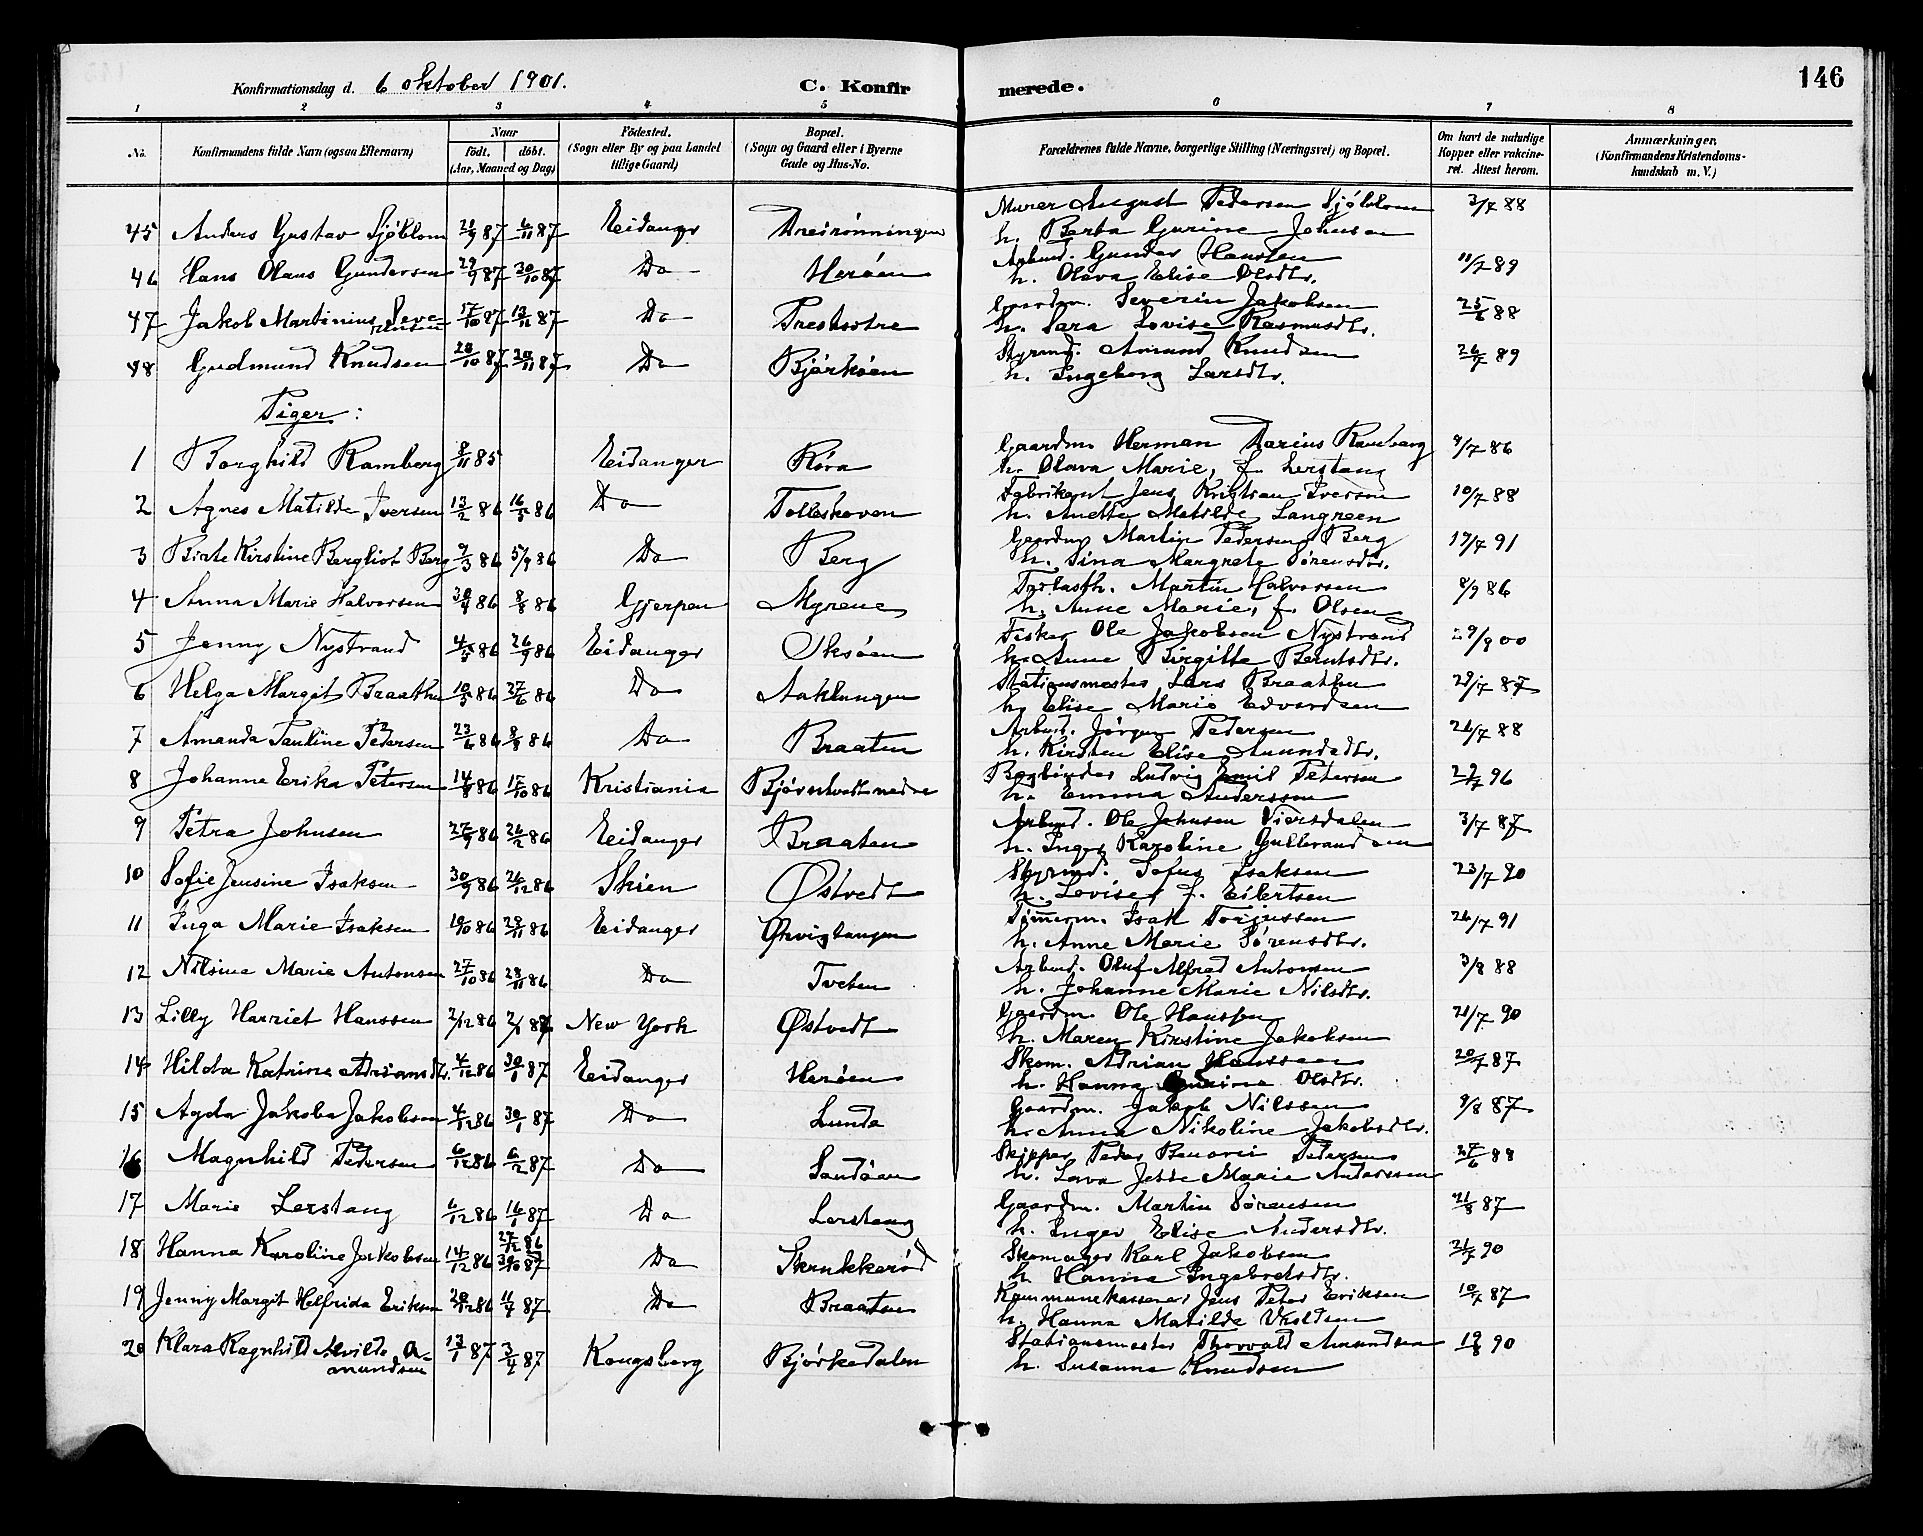 146
Konfirmationsdag d. 6 oktober 1901. C. Konfirmerede.
1 2 3 4 5 6 7 8
No. Konfirmandens fulde Navn (ogsaa Efternavn) Naar født. døbt. (Aar, Maaned og Dag) Födested. (Sogn eller By og paa Landet tillige Gaard) Bopæl. (Sogn og Gaard eller i Byerne Gade og Hus-No. Forældrenes fulde Navne, borgerlige Stilling (Næringsvei) og Bopæl. Om havt de naturlige Kopper eller vakcineret. Attest herom. Anmærkninger. (Konfirmandens Kristendomskundskab m. V.)
45 Anders Gustav Sjöblom 21/9 87 6/11 87 Eidanger Murer August Pedersen Sjöblom 3/7 88
h. Berta Gurine Johnsen
46 Hans Olaus Gundersen 29/9 87 30/10 87 Do Heröen Arbmd. Gunder Hansen 11/7 89
h. Olava Elise Olsdtr.
47 Jakob Martinius Severinsen 17/10 87 13/11 87 Do Prestsætre Gaardm. Severin Jakobsen 25/6 88
h. Sara Lovise Rasmusdtr.
48 Gudmund Knudsen 28/10 87 20/11 87 Do Bjørköen Styrmd. Amund Knudsen 26/7 89
h. Ingeborg Larsdtr.
Piger:
1 Borghild Ramberg 8/11 85 Eidanger Röra Gaardm. Herman Darius Ramberg 9/7 86
h. Olava Marie, f. Lerstang
2 Agnes Matilde Iversen 13/2 86 16/5 86 Do Tolleskoven Fabrikant Jens Kristian Iversen 10/7 88
h. Anette Matilde Langreen
3 Birte Kirstine Bergliot Berg 9/3 86 5/9 86 Do Berg Gaardm Martin Pedersen Berg 17/7 91
h. Sina Margrete Sörensdtr.
4 Anna Marie Halvorsen 30/4 86 8/8 86 Gjerpen Myrene Martin Halvorsen 8/9 86
h. Anne Marie, f. Olsen
5 Jenny Nystrand 4/5 86 26/9 86 Eidanger Oksöen Fisker Ole Jakobsen Nystrand 29/8 00
h. Anne Birgitte Berntsdtr.
6 Helga Margit Braathen 10/5 86 27/6 86 Do Aaklungen Stationsmester Lars Braathen 29/7 87
h. Elise Marie Edvardsen
7 Amanda Pauline Pedersen 23/6 86 8/8 86 Do Braaten Arbmd. Jørgen Pedersen 26/7 88
h. Kirsten Elise Amundsdtr.
8 Johanne Erika Petersen 14/8 86 17/10 86 Kristiania Bjørntvedt nedre Bogbinder Ludvig Emil Petersen 29/7 96
h. Emma Andersson
9 Petra Johnsen 27/9 86 26/12 86 Eidanger Braaten Arbmd. Ole Johnsen Viersdalen 3/7 87
h. Inger Karoline Gulbrandsen
10 Sofie Jensine Isaksen 30/9 86 26/12 86 Skien Østvedt Styrmd. Sofus Isaksen 23/7 90
h. Lovise f. Eilertsen
11 Inga Marie Isaksen 10/10 86 28/11 86 Eidanger Økvigtangen Timmerm. Isak Torjussen 26/7 91
h. Anne Marie Sörensdtr.
12 Nilsine Marie Antonsen 27/10 86 28/11 86 Do Tveten Arbmd. Oluf Alfred Antonsen 3/8 88
h. Johanne Marie Nilsdtr.
13 Lilly Harriet Hanssen 2/12 86 2/1 87 New York Østvedt Gaardm. Ole Hanssen 21/7 90
h. Maren Kirstine Jakobsen
14 Hilda Katrine Adriansdtr. 4/12 86 30/1 87 Eidanger Heröen Skom. Adrian Hanssen 20/7 87
h. Hanna Olsdtr.
15 Agda Jakoba Jakobsen 4/12 86 30/1 87 Do Lunde Gaardm. Jakob Nilssen 9/8 87
h. Anna Nikoline Jakobsdtr.
16 Magnhild Pedersen 6/12 86 6/2 87 Do Sandöen Skipper Peder Benoni Pedersen 27/6 88
h. Lava Jette Marie Anderssen
17 Marie Lerstang 6/12 86 16/1 87 Do Lerstang Gaardm. Martin Sörensen 21/8 87
h. Inger Elise Andersdtr.
18 Hanna Karoline Jakobsen 14/12 86 27/12 86 30/10 87 Do Skrukkeröd Skomager Karl Jakobsen 21/7 90
h. Hanna Ingebretsdtr.
19 Jenny Margit Helfrida Eriksen 28/12 86 11/4 87 Do Braaten Kommunekasserer Jens Peter Eriksen 10/7 87
h. Hanna Matilde
20 Klara Ragnhild Alvilde Amundsen 13/1 87 3/4 87 Kongsberg Bjørkedalen Stationsmester Thorvald Amundsen 19/8 90
h. Susanne Knudsen